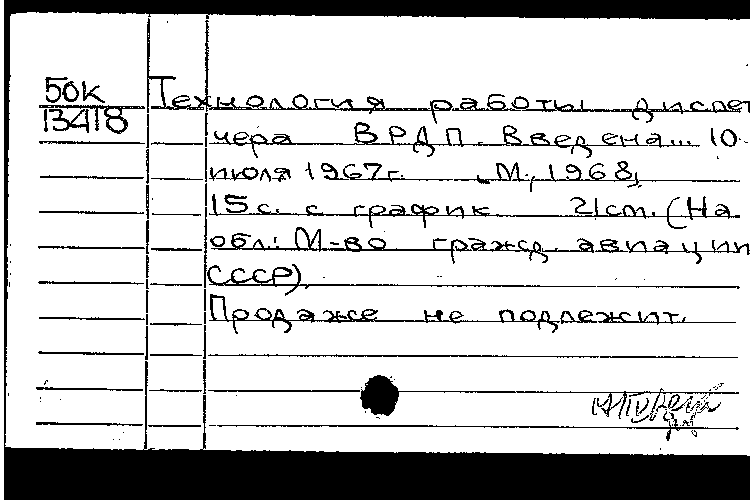 50к
13418
Технология работы диспет
чера ВРДП. Введена... 10
июля 1967г. М., 1968,
15с. с график. 21cm. (На
обл.: М-во гражд. авиации
СССР).
Продаже не подлежит.